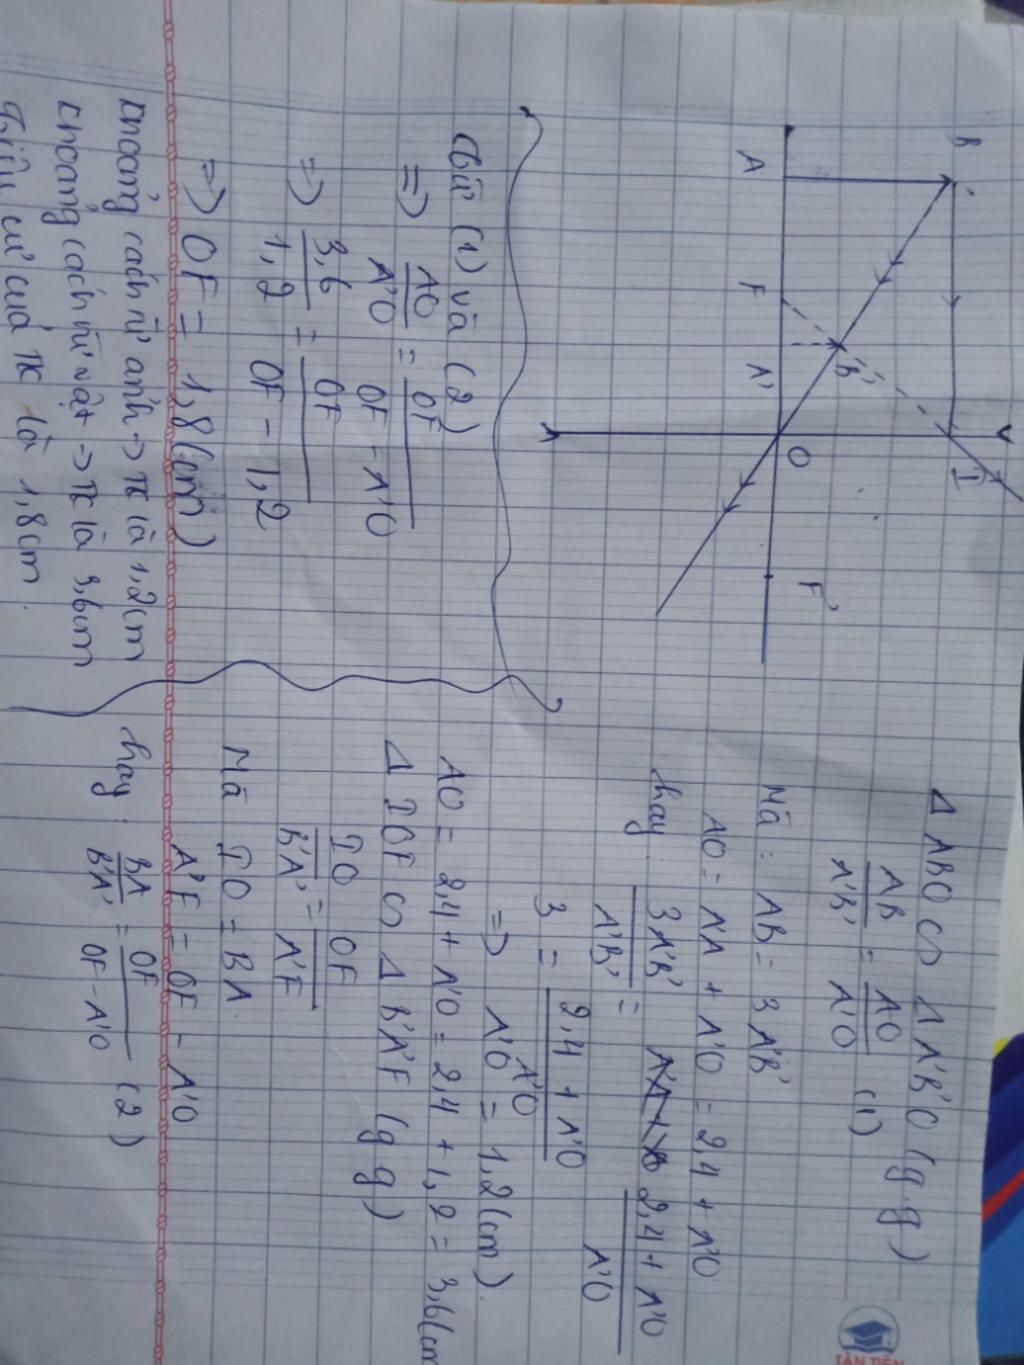 B
I
B'
A
F
A'
O
F'
Δ ABO ∽ Δ A'B'O (g.g)
AB/A'B' = AO/A'O (1)
Mà: AB = 3A'B'
AO = AA' + A'O = 2,4 + A'O
hay 3A'B'/A'B' = 2,4 + A'O/A'O
3 = 2,4 + A'O/A'O
=> A'O = 1,2(cm).
AO = 2,4 + A'O = 2,4 + 1,2 = 3,6(cm
Δ IOF ∽ Δ B'A'F (g g)
IO/B'A' = OF/A'F
Mà IO = BA.
A'F = OF - A'O
hay: BA/B'A' = OF/OF - A'O (2)
Từ (1) và (2)
=> AO/A'O = OF/OF - A'O
=> 3,6/1,2 = OF/OF - 1,2
=> OF = 1,8(cm)
khoảng cách từ ảnh -> TK là 1,2cm
khoảng cách từ vật -> TK là 3,6cm
Tiêu cự của TK là 1,8cm.
TÂN TIẾN